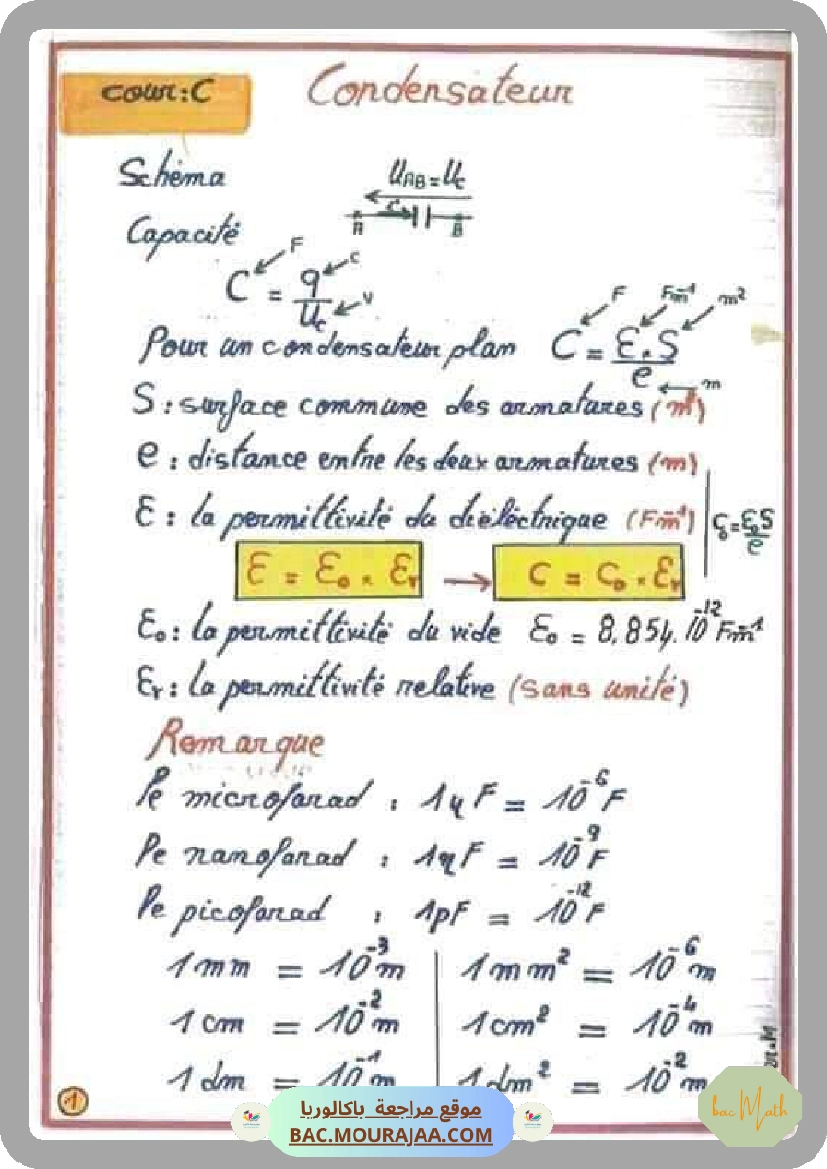 cour : C
Condensateur
Schéma
U_AB = U_C
A B
Capacité
C = q / U_C
F C V
Pour un condensateur plan C = ε.S / e
F Fm⁻¹ m² m
S : surface commune des armatures (m²)
e : distance entre les deux armatures (m)
ε : la permittivité du diéléctrique (Fm⁻¹) C₀ = ε₀S / e
ε = ε₀ . εᵣ → C = C₀ . εᵣ
ε₀ : la permittivité du vide ε₀ = 8,854.10⁻¹² Fm⁻¹
εᵣ : la permittivité relative (sans unité)
Remarque
Le microfarad : 1μF = 10⁻⁶F
Le nanofarad : 1ηF = 10⁻⁹F
Le picofarad : 1pF = 10⁻¹²F
1mm = 10⁻³m | 1mm² = 10⁻⁶m
1cm = 10⁻²m | 1cm² = 10⁻⁴m
1dm = 10⁻¹m | 1dm² = 10⁻²m
1
موقع مراجعة باكالوريا
BAC.MOURAJAA.COM
bac Math